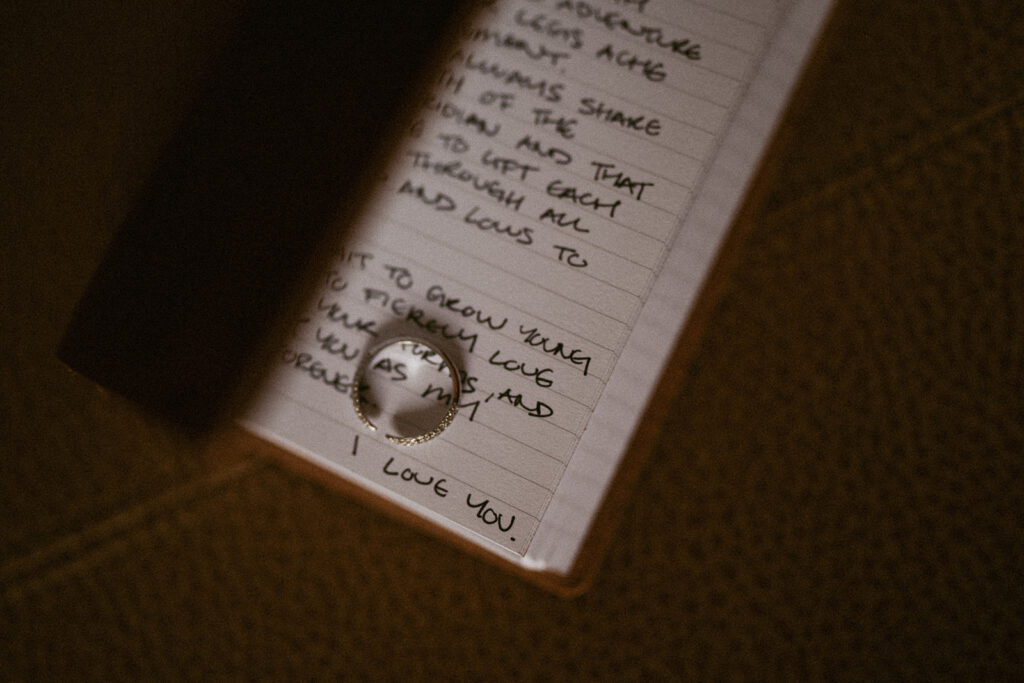 ADVENTURE
LEGS ACHE
SHARE
OF THE
AND THAT
TO LIFT EACH
THROUGH ALL
AND LOWS TO
TO GROW YOUNG
FIERCELY LOVE
YOUR AND
YOU AS MY
I LOVE YOU.